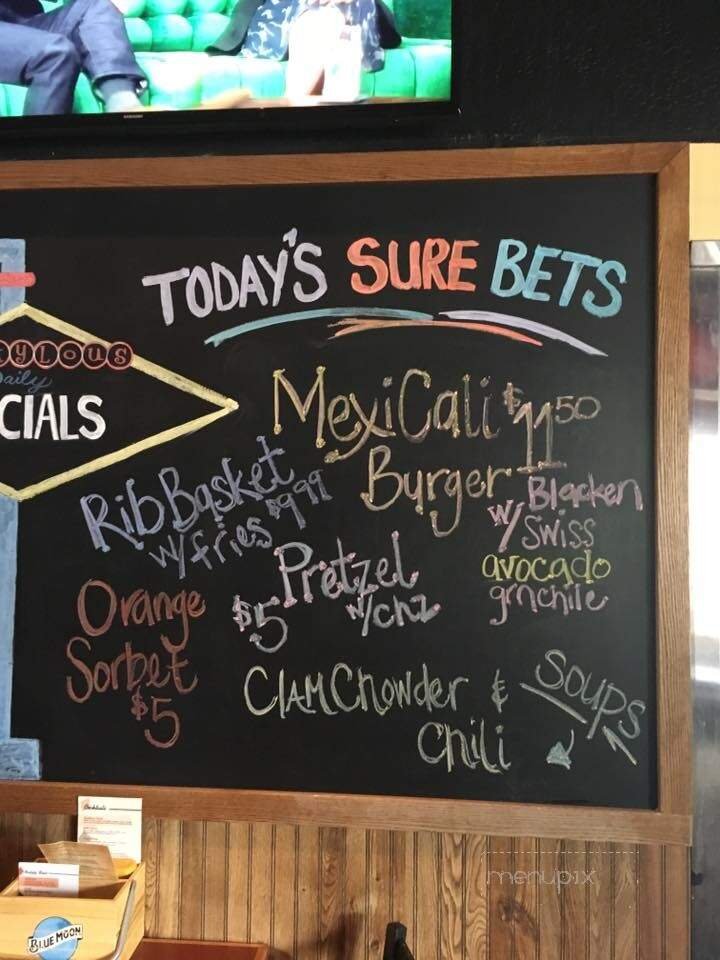 TODAY'S SURE BETS
YLOUS
aily
CIALS
MexiCali $11.50
Burger
Blacken
w/ Swiss
avocado
grnchile
Rib Basket
w/fries $9.99
Pretzel
$5 w/chz
Orange
Sorbet
$5
CLAM Chowder &
Chili
Soups
BLUE MOON
menupix